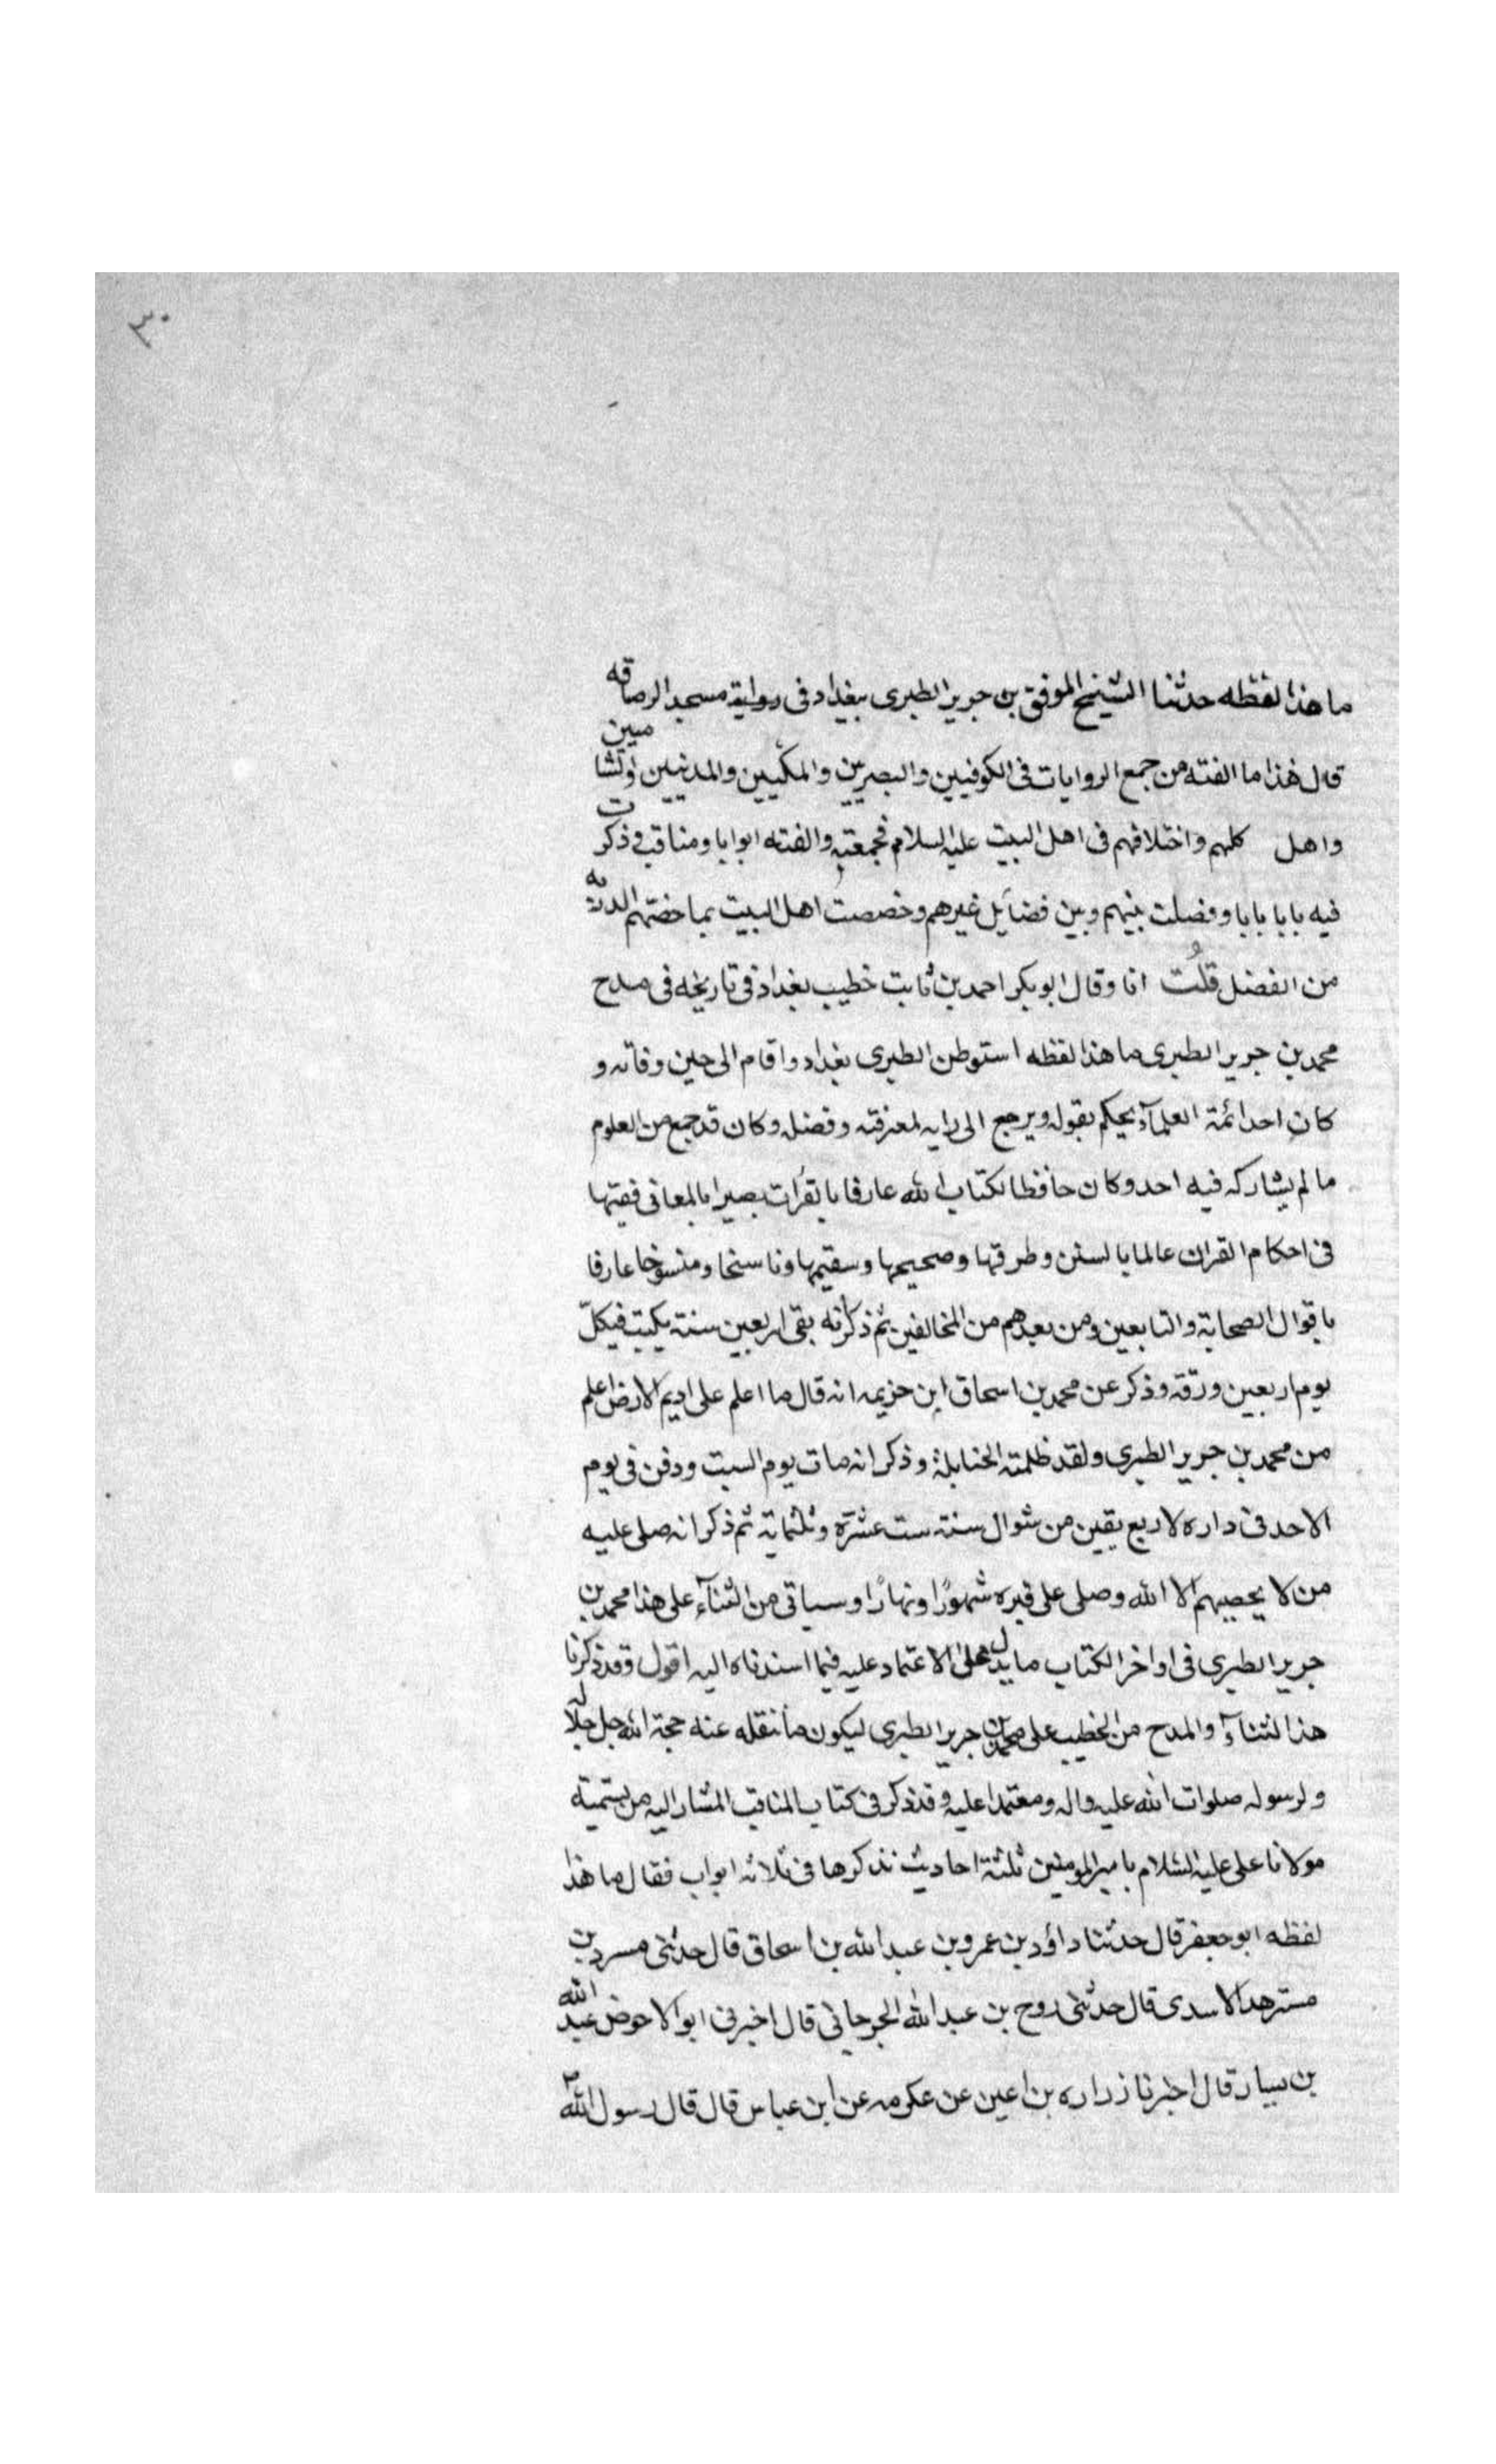 ٣٠
ما هذا لفظه حدثنا الشيخ الموفق بن جرير الطبرى ببغداد فى رواية مسجد الرصافه
قال هذا ما الفته من جمع الروايات فى الكوفيين والبصريين والمكيين والمدنيين والشاميين
واهل كلهم واختلافهم فى اهل البيت عليه السلام فجمعته والفته ابوابا ومناقب وذكرت
فيه بابا بابا وفصلت بينهم وبين فضايل غيرهم وخصصت اهل البيت بما خصهم الله به
من الفضل قلُت انا وقال ابو بكر احمد بن ثابت خطيب بغداد فى تاريخه فى مدح
محمد بن جرير الطبرى ما هذا لفظه استوطن الطبرى بغداد واقام الى حين وفاته و
كان احد ائمة العلمآء يحكم بقوله ويرجع الى رايه لمعرفته وفضله وكان قد جمع من العلوم
ما لم يشاركه فيه احد وكان حافظا لكتاب الله عارفا بالقرأت بصيرا بالمعانى فقيها
فى احكام القران عالما بالسنن وطرقها وصحيحها وسقيمها وناسخا ومنسوخا عارفا
باقوال الصحابة والتابعين ومن بعدهم من المخالفين ثم ذكر انه بقى اربعين سنة يكتب فيكلّ
يوم اربعين ورقة وذكر عن محمد بن اسحاق ابن خزيمه انه قال ما اعلم على اديم الارض اعلم
من محمد بن جرير الطبرى ولقد ظلمته الحنابلة وذكر انه مات يوم السبت ودفن فى يوم
الاحد فى داره لاربع بقين من شوال سنة ست عشرة وثلثماية ثم ذكر انه صلى عليه
من لا يحصيهم الا الله وصلى على قبره شهورًا ونهارًا وسياتى من الثنآء على هذا محمد بن
جرير الطبرى فى اواخر الكتاب ما يدل على الاعتماد عليه فيما اسندناه اليه اقول وقد ذكرنا
هذا لثنآء والمدح من الخطيب على محمد بن جرير الطبرى ليكون ما ننقله عنه حجة الله جل جلاله
ولرسوله صلوات الله عليه واله ومعتمدا عليه وقد ذكر فى كتاب المناقب المشار اليه من تسمية
مولانا على عليه السّلام بامير المومنين ثلثة احاديث نذكرها فى ثلاثه ابواب فقال ما هذا
لفظه ابو جعفر قال حدثنا داؤد بن عمرو بن عبد الله بن اسحاق قال حدثنى مسرد بن
مسترهد الاسدى قال حدثنى روح بن عبد الله الجرجانى قال اخبرنى ابو الاحوض عبد الله
بن يسار قال اخبرنا زراره بن اعين عن عكرمه عن ابن عباس قال قال رسول اللهؐ